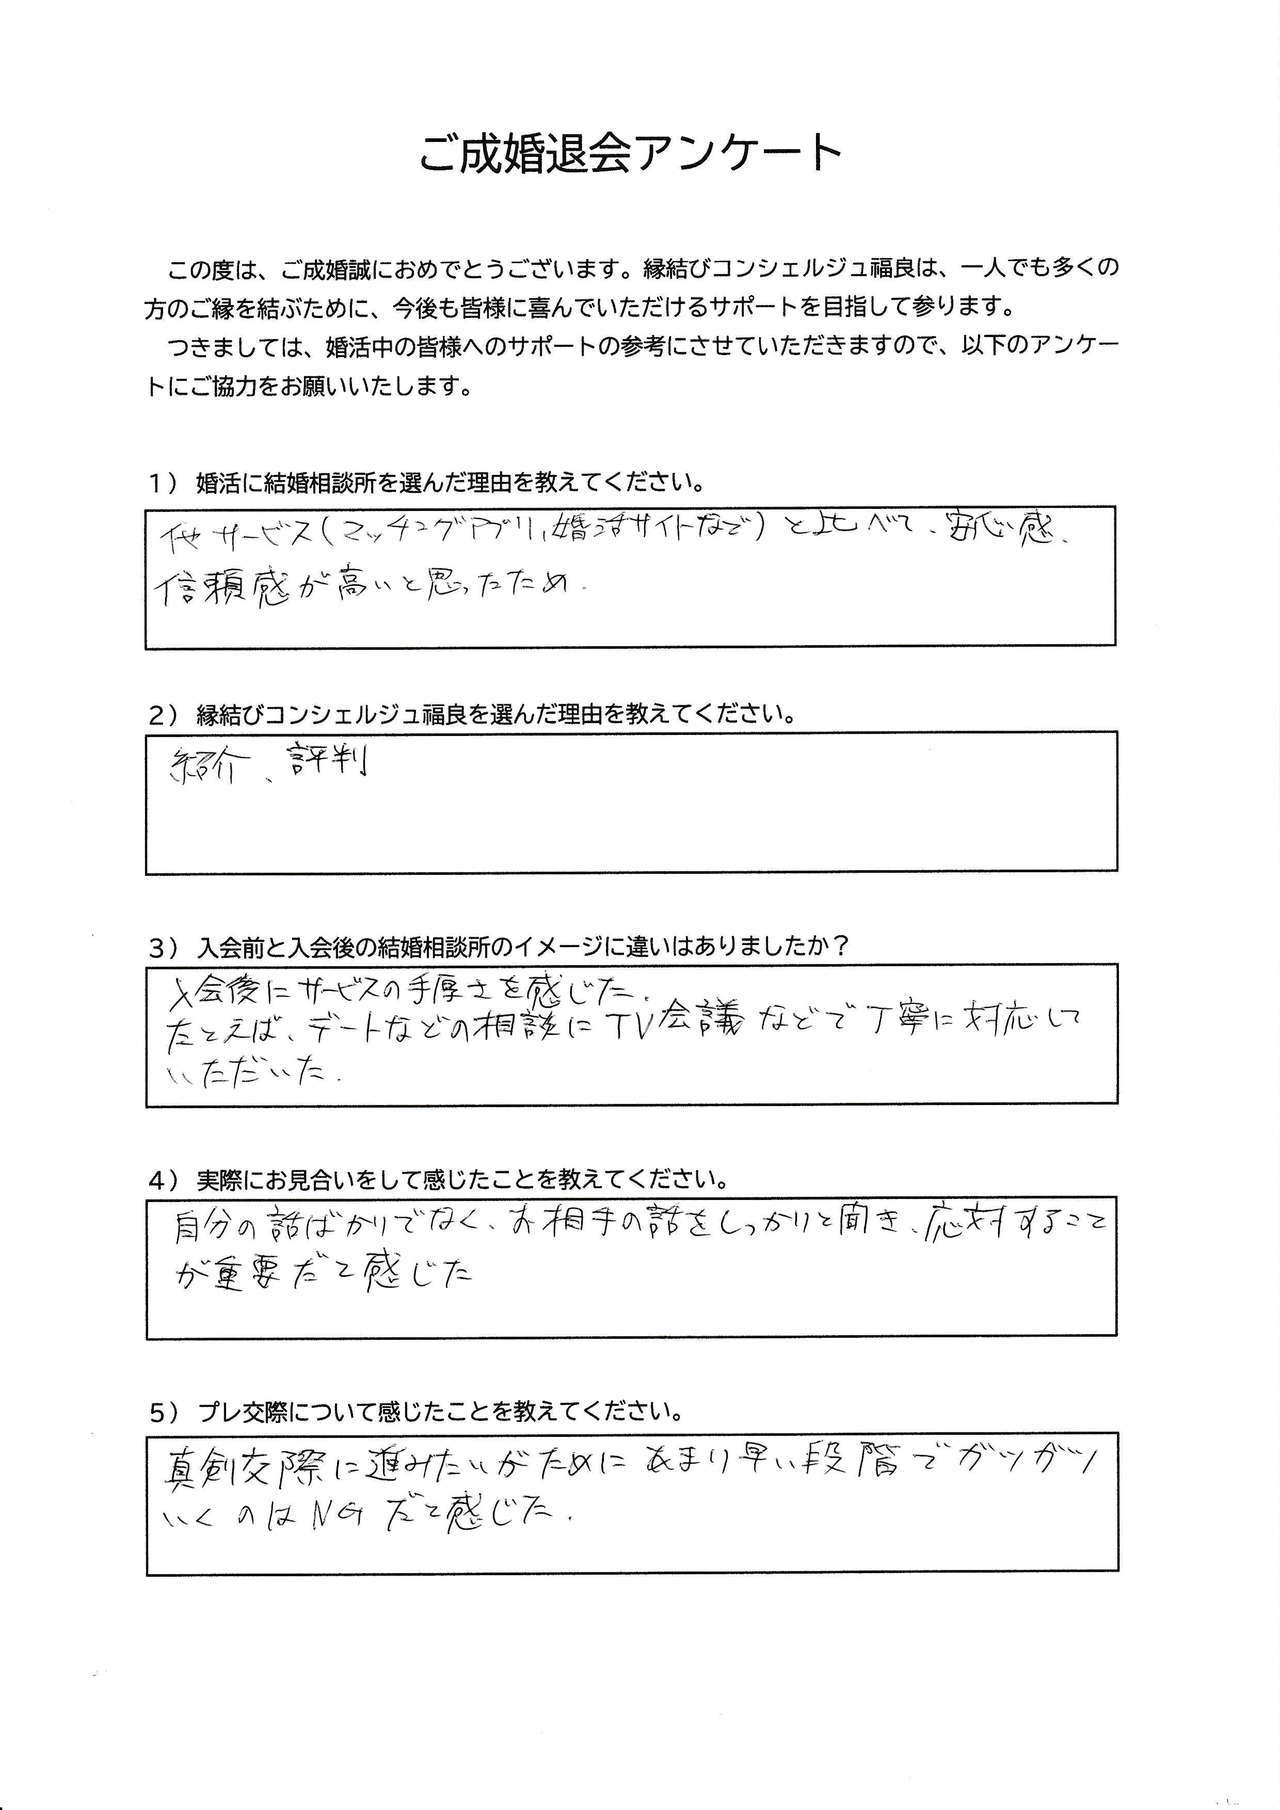 ご成婚退会アンケート
この度は、ご成婚誠におめでとうございます。縁結びコンシェルジュ福良は、一人でも多くの
方のご縁を結ぶために、今後も皆様に喜んでいただけるサポートを目指して参ります。
つきましては、婚活中の皆様へのサポートの参考にさせていただきますので、以下のアンケー
トにご協力をお願いいたします。
１） 婚活に結婚相談所を選んだ理由を教えてください。
他サービス(マッチングアプリ,婚活サイトなど)と比べて、安心感、
信頼感が高いと思ったため.
２） 縁結びコンシェルジュ福良を選んだ理由を教えてください。
紹介、評判
３） 入会前と入会後の結婚相談所のイメージに違いはありましたか？
入会後にサービスの手厚さを感じた.
たとえば、デートなどの相談にTV会議などで丁寧に対応して
いただいた.
４） 実際にお見合いをして感じたことを教えてください。
自分の話ばかりでなく、お相手の話をしっかりと聞き、応対すること
が重要だと感じた
５） プレ交際について感じたことを教えてください。
真剣交際に進みたいがためにあまり早い段階でガツガツ
いくのはNGだと感じた.